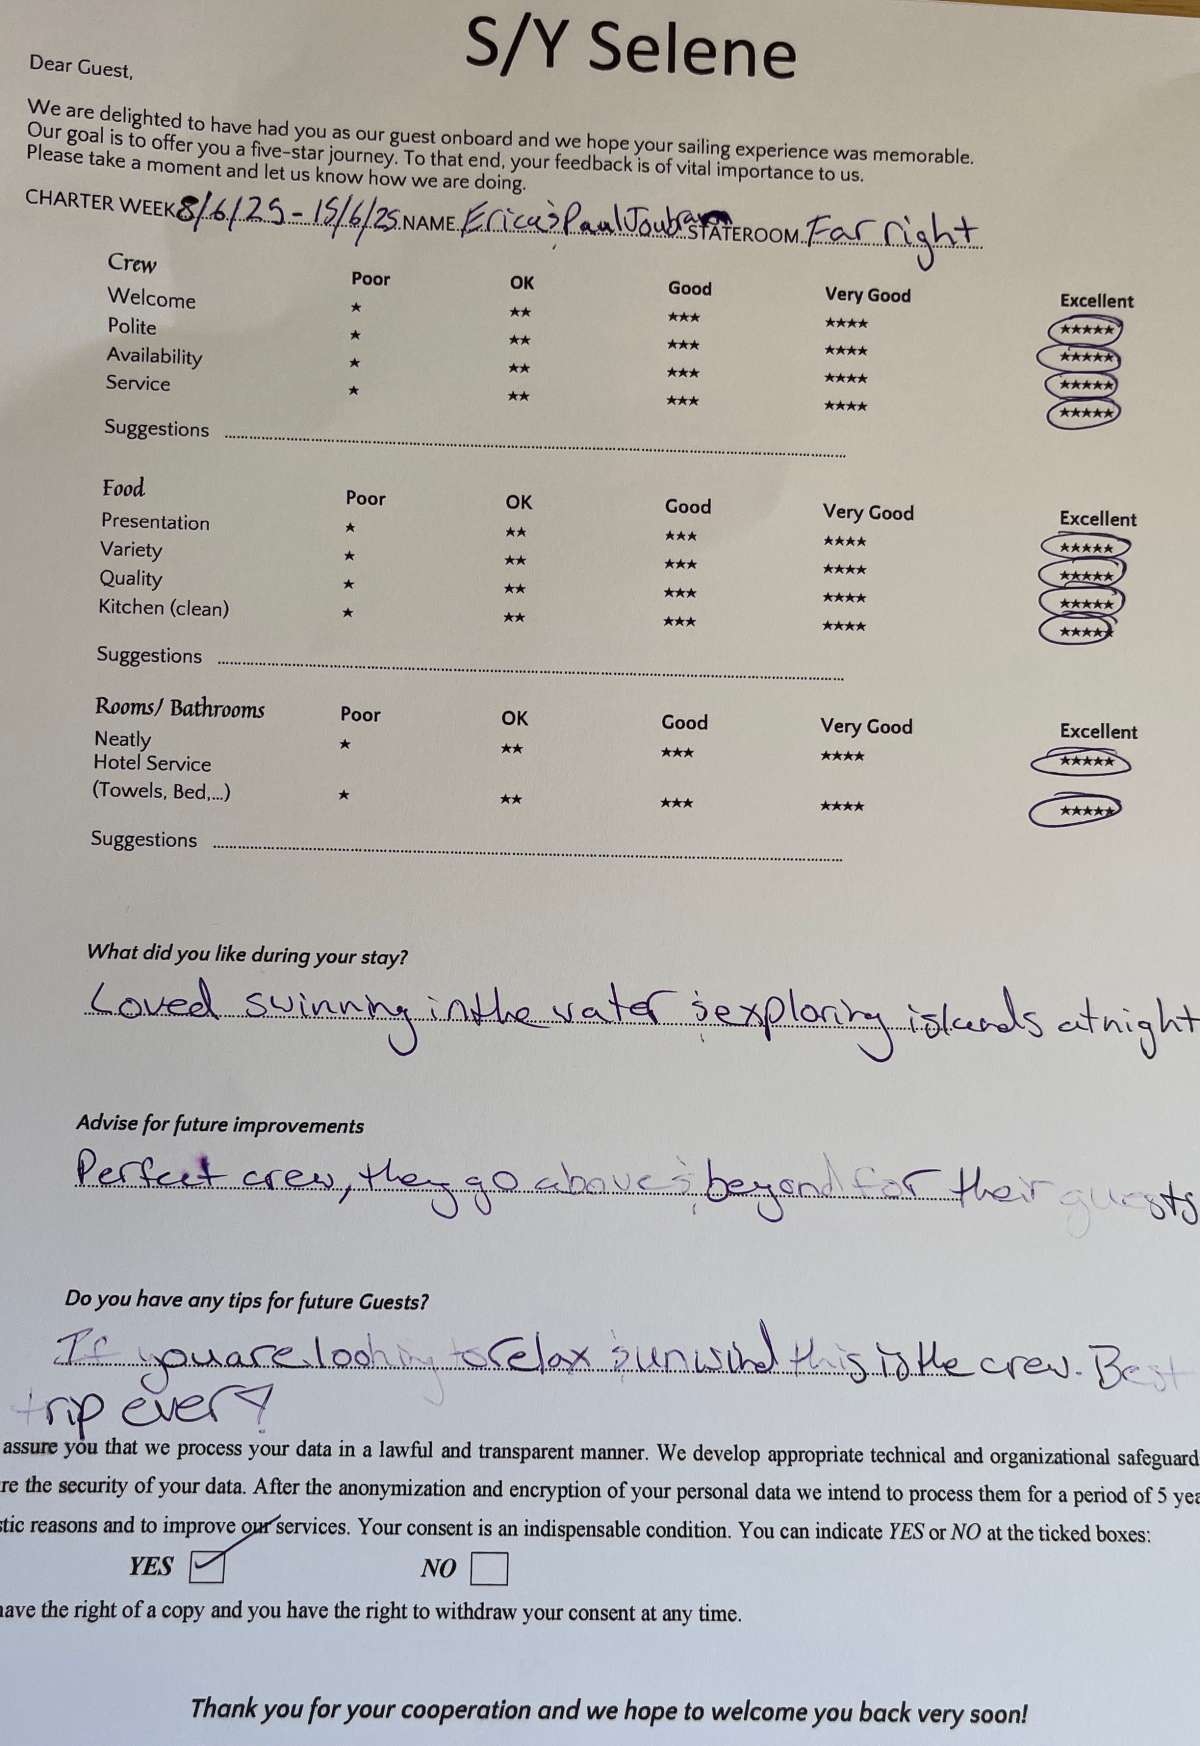 S/Y Selene
Dear Guest,
We are delighted to have had you as our guest onboard and we hope your sailing experience was memorable.
Our goal is to offer you a five-star journey. To that end, your feedback is of vital importance to us.
Please take a moment and let us know how we are doing.
CHARTER WEEK 8/6/25 - 15/6/25 NAME Erica & Paul STATEROOM Far right
Crew Poor OK Good Very Good Excellent
Welcome ★ ★★ ★★★ ★★★★ ★★★★★
Polite ★ ★★ ★★★ ★★★★ ★★★★★
Availability ★ ★★ ★★★ ★★★★ ★★★★★
Service ★ ★★ ★★★ ★★★★ ★★★★★
Suggestions
Food Poor OK Good Very Good Excellent
Presentation ★ ★★ ★★★ ★★★★ ★★★★★
Variety ★ ★★ ★★★ ★★★★ ★★★★★
Quality ★ ★★ ★★★ ★★★★ ★★★★★
Kitchen (clean) ★ ★★ ★★★ ★★★★ ★★★★★
Suggestions
Rooms/ Bathrooms Poor OK Good Very Good Excellent
Neatly ★ ★★ ★★★ ★★★★ ★★★★★
Hotel Service
(Towels, Bed,...) ★ ★★ ★★★ ★★★★ ★★★★★
Suggestions
What did you like during your stay?
Loved swimming in the water & exploring islands at night
Advise for future improvements
Perfect crew, they go above & beyond for their guests
Do you have any tips for future Guests?
If you are looking to relax & unwind this is the crew. Best
trip ever!
assure you that we process your data in a lawful and transparent manner. We develop appropriate technical and organizational safeguard
re the security of your data. After the anonymization and encryption of your personal data we intend to process them for a period of 5 yea
stic reasons and to improve our services. Your consent is an indispensable condition. You can indicate YES or NO at the ticked boxes:
YES NO
have the right of a copy and you have the right to withdraw your consent at any time.
Thank you for your cooperation and we hope to welcome you back very soon!